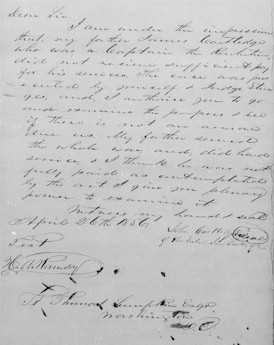 Dear Sir.
I am under the impression
that my father James Cartledge
who was a Captain in the Revolution
did not recieve sufficient pay
for his services The case was pros
ecuted by yourself & Judge
ges, and, I authorise you to go
and examine the papers & see
if there is not an amount
due us. My father served
the whole war and, did hard
service, & I think he was not
fully paid as contemplated
by the act I give you plenary
power to examine it
Witness my hand & seal
April 26th 1856
John Cartledge Seal
Test
To Thomas Lumpkin Esqr
Washington
D. C.